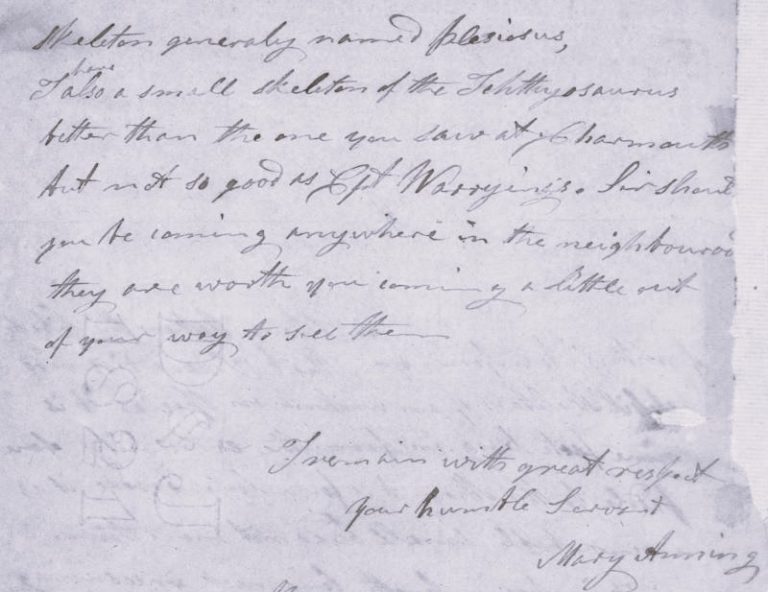 skeleton generaly named plesiosus,
I have also a small skeleton of the Ichthyosaurus
better than the one you saw at Charmouth
but not so good as Cpt Warrying's. Sir should
you be coming anywhere in the neighbourood
they are worth you coming a little out
of your way to see them
I remain with great respect
your humble Servant
Mary Anning